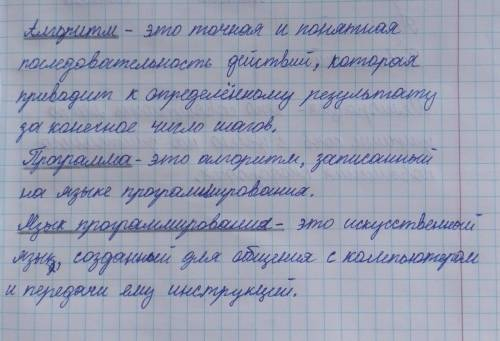 Алгоритм - это точная и понятная
последовательность действий, которая
приводит к определённому результату
за конечное число шагов.
Программа - это алгоритм, записанный
на языке программирования.
Язык программирования - это искусственный
язык, созданный для общения с компьютером
и передачи ему инструкций.